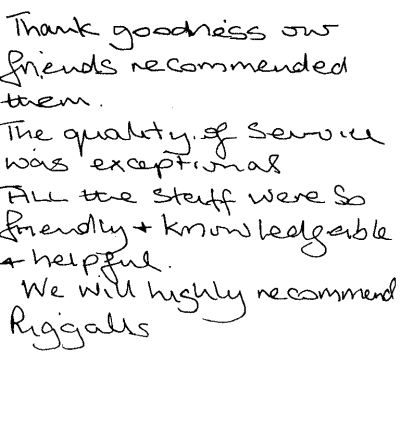 Thank goodness our
friends recommended
them.
The quality of service
was exceptional
All the staff were so
friendly + knowledgeable
+ helpful.
We will highly recommend
Riggalls